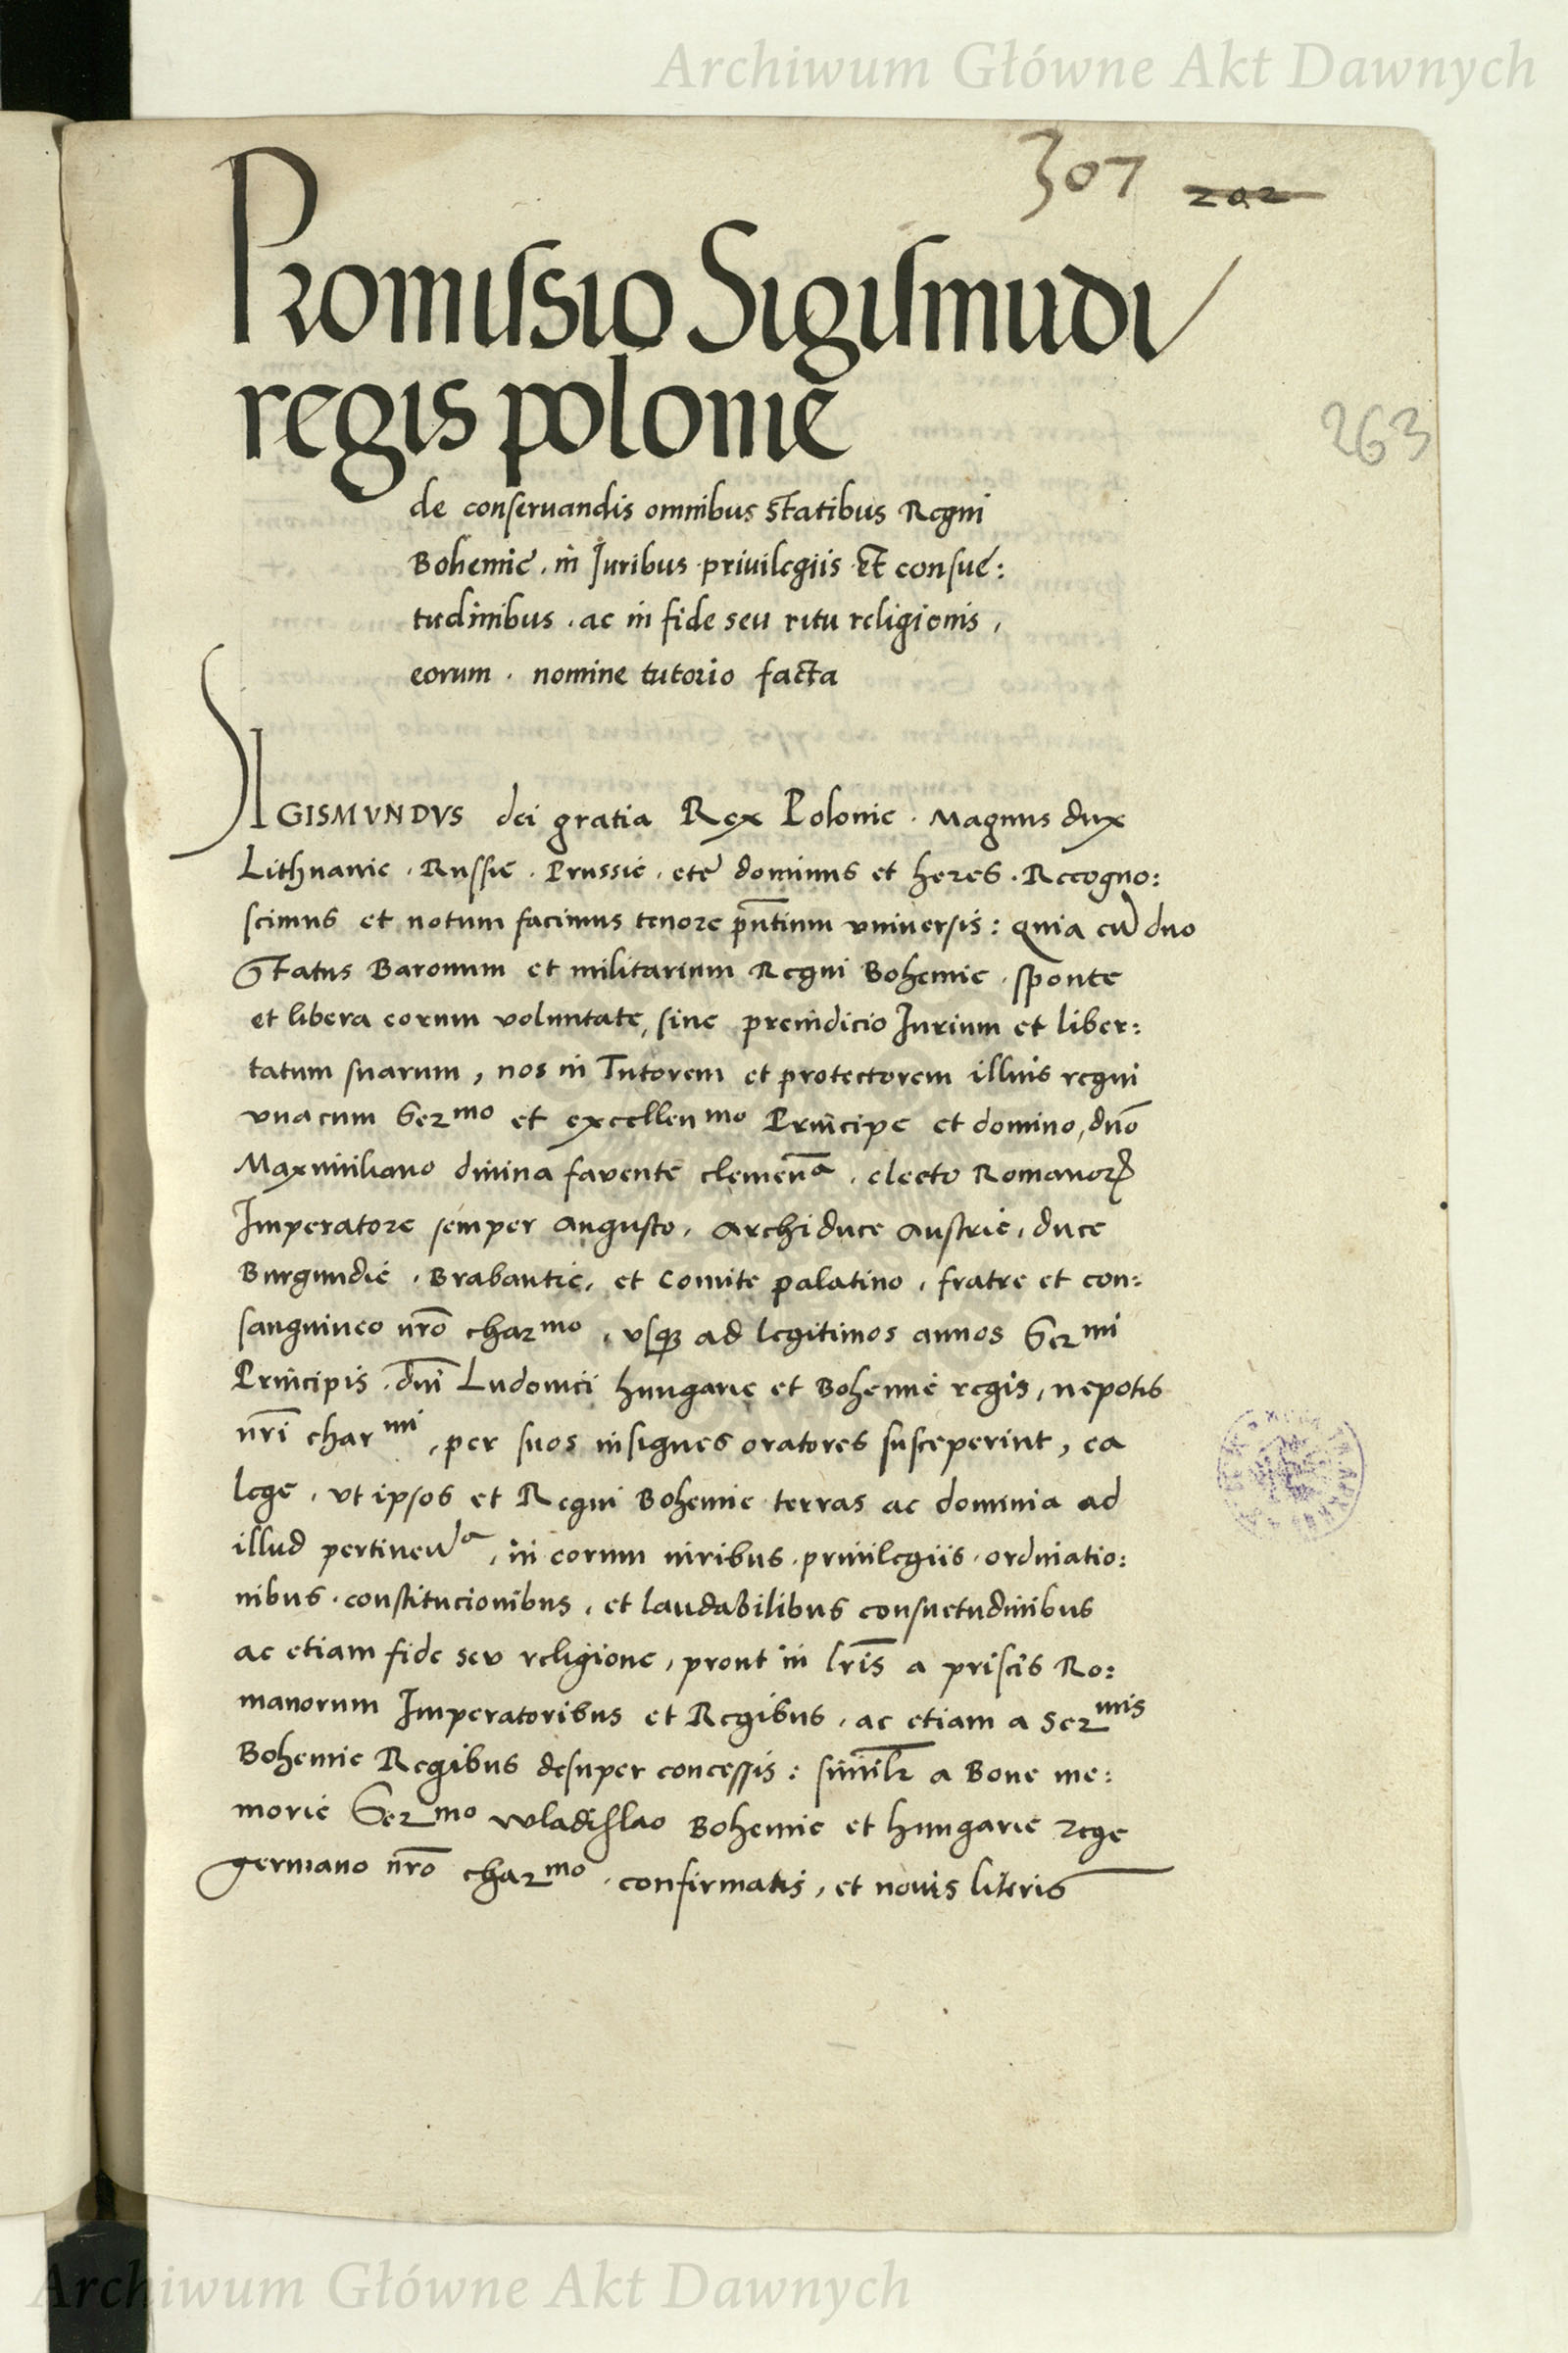 Archiwum Główne Akt Dawnych
307 202
Promissio Sigismudi
regis polonie
263
de conseruandis omnibus Statibus Regni
Bohemie . in Juribus priuilegiis Et consue:
tudinibus . ac in fide seu ritu religionis ,
eorum . nomine tutorio facta
SIGISMVNDVS dei gratia Rex Polonie . Magnus dux
Lithuanie . Russie . Prussie . etc dominus et heres . Recogno:
scimus et notum facimus tenore pntium vniuersis : Quia cu duo
Status Baronum et militarium Regni Bohemie . sponte
et libera eorum voluntate, sine preiudicio Jurium et liber:
tatum suarum , nos in Tutorem et protectorem illius regni
vna cum Ser mo et excellen mo Principe et domino, dno
Maxmiliano diuina fauente clemen a . electo Romanorꝝ
Imperatore semper augusto . Archiduce Austrie . duce
Burgundie . Brabantie . et Comite palatino . fratre et con:
sanguineo nro char mo . vsqꝫ ad legitimos annos Ser mi
Principis . dni Ludouici hungarie et Bohemie regis , nepotis
nri char mi , per suos insignes oratores susceperint , ea
lege . vt ipsos et Regni Bohemie terras ac dominia ad
illud pertinen a . in eorum iuribus . priuilegiis . ordinatio:
nibus . constitucionibus . et laudabilibus consuetudinibus
ac etiam fide seu religione , prout in lris a priscis Ro:
manorum Imperatoribus et Regibus . ac etiam a Ser mis
Bohemie Regibus desuper concessis : similr a Bone me:
morie Ser mo wladislao Bohemie et hungarie rege
germano nro char mo . confirmatis , et nouis literis
Archiwum Główne Akt Dawnych